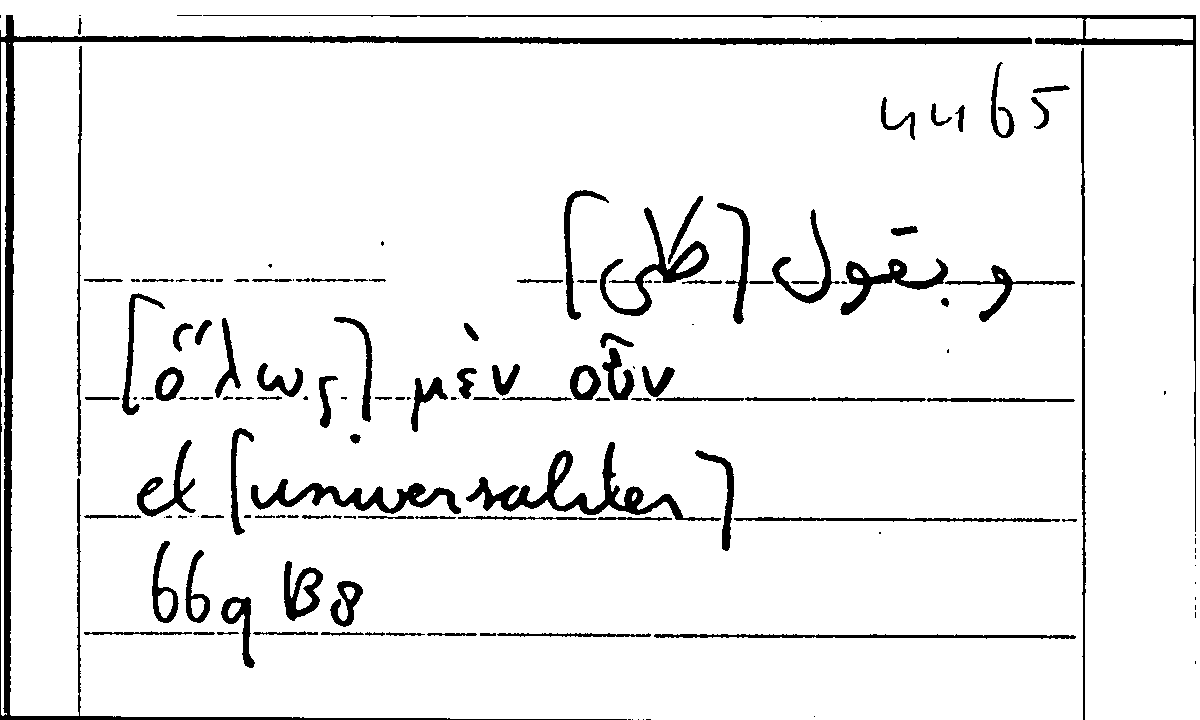 4465
وبقول [كلى]
[ὅλως] μὲν οὖν
et [universaliter]
669 B8